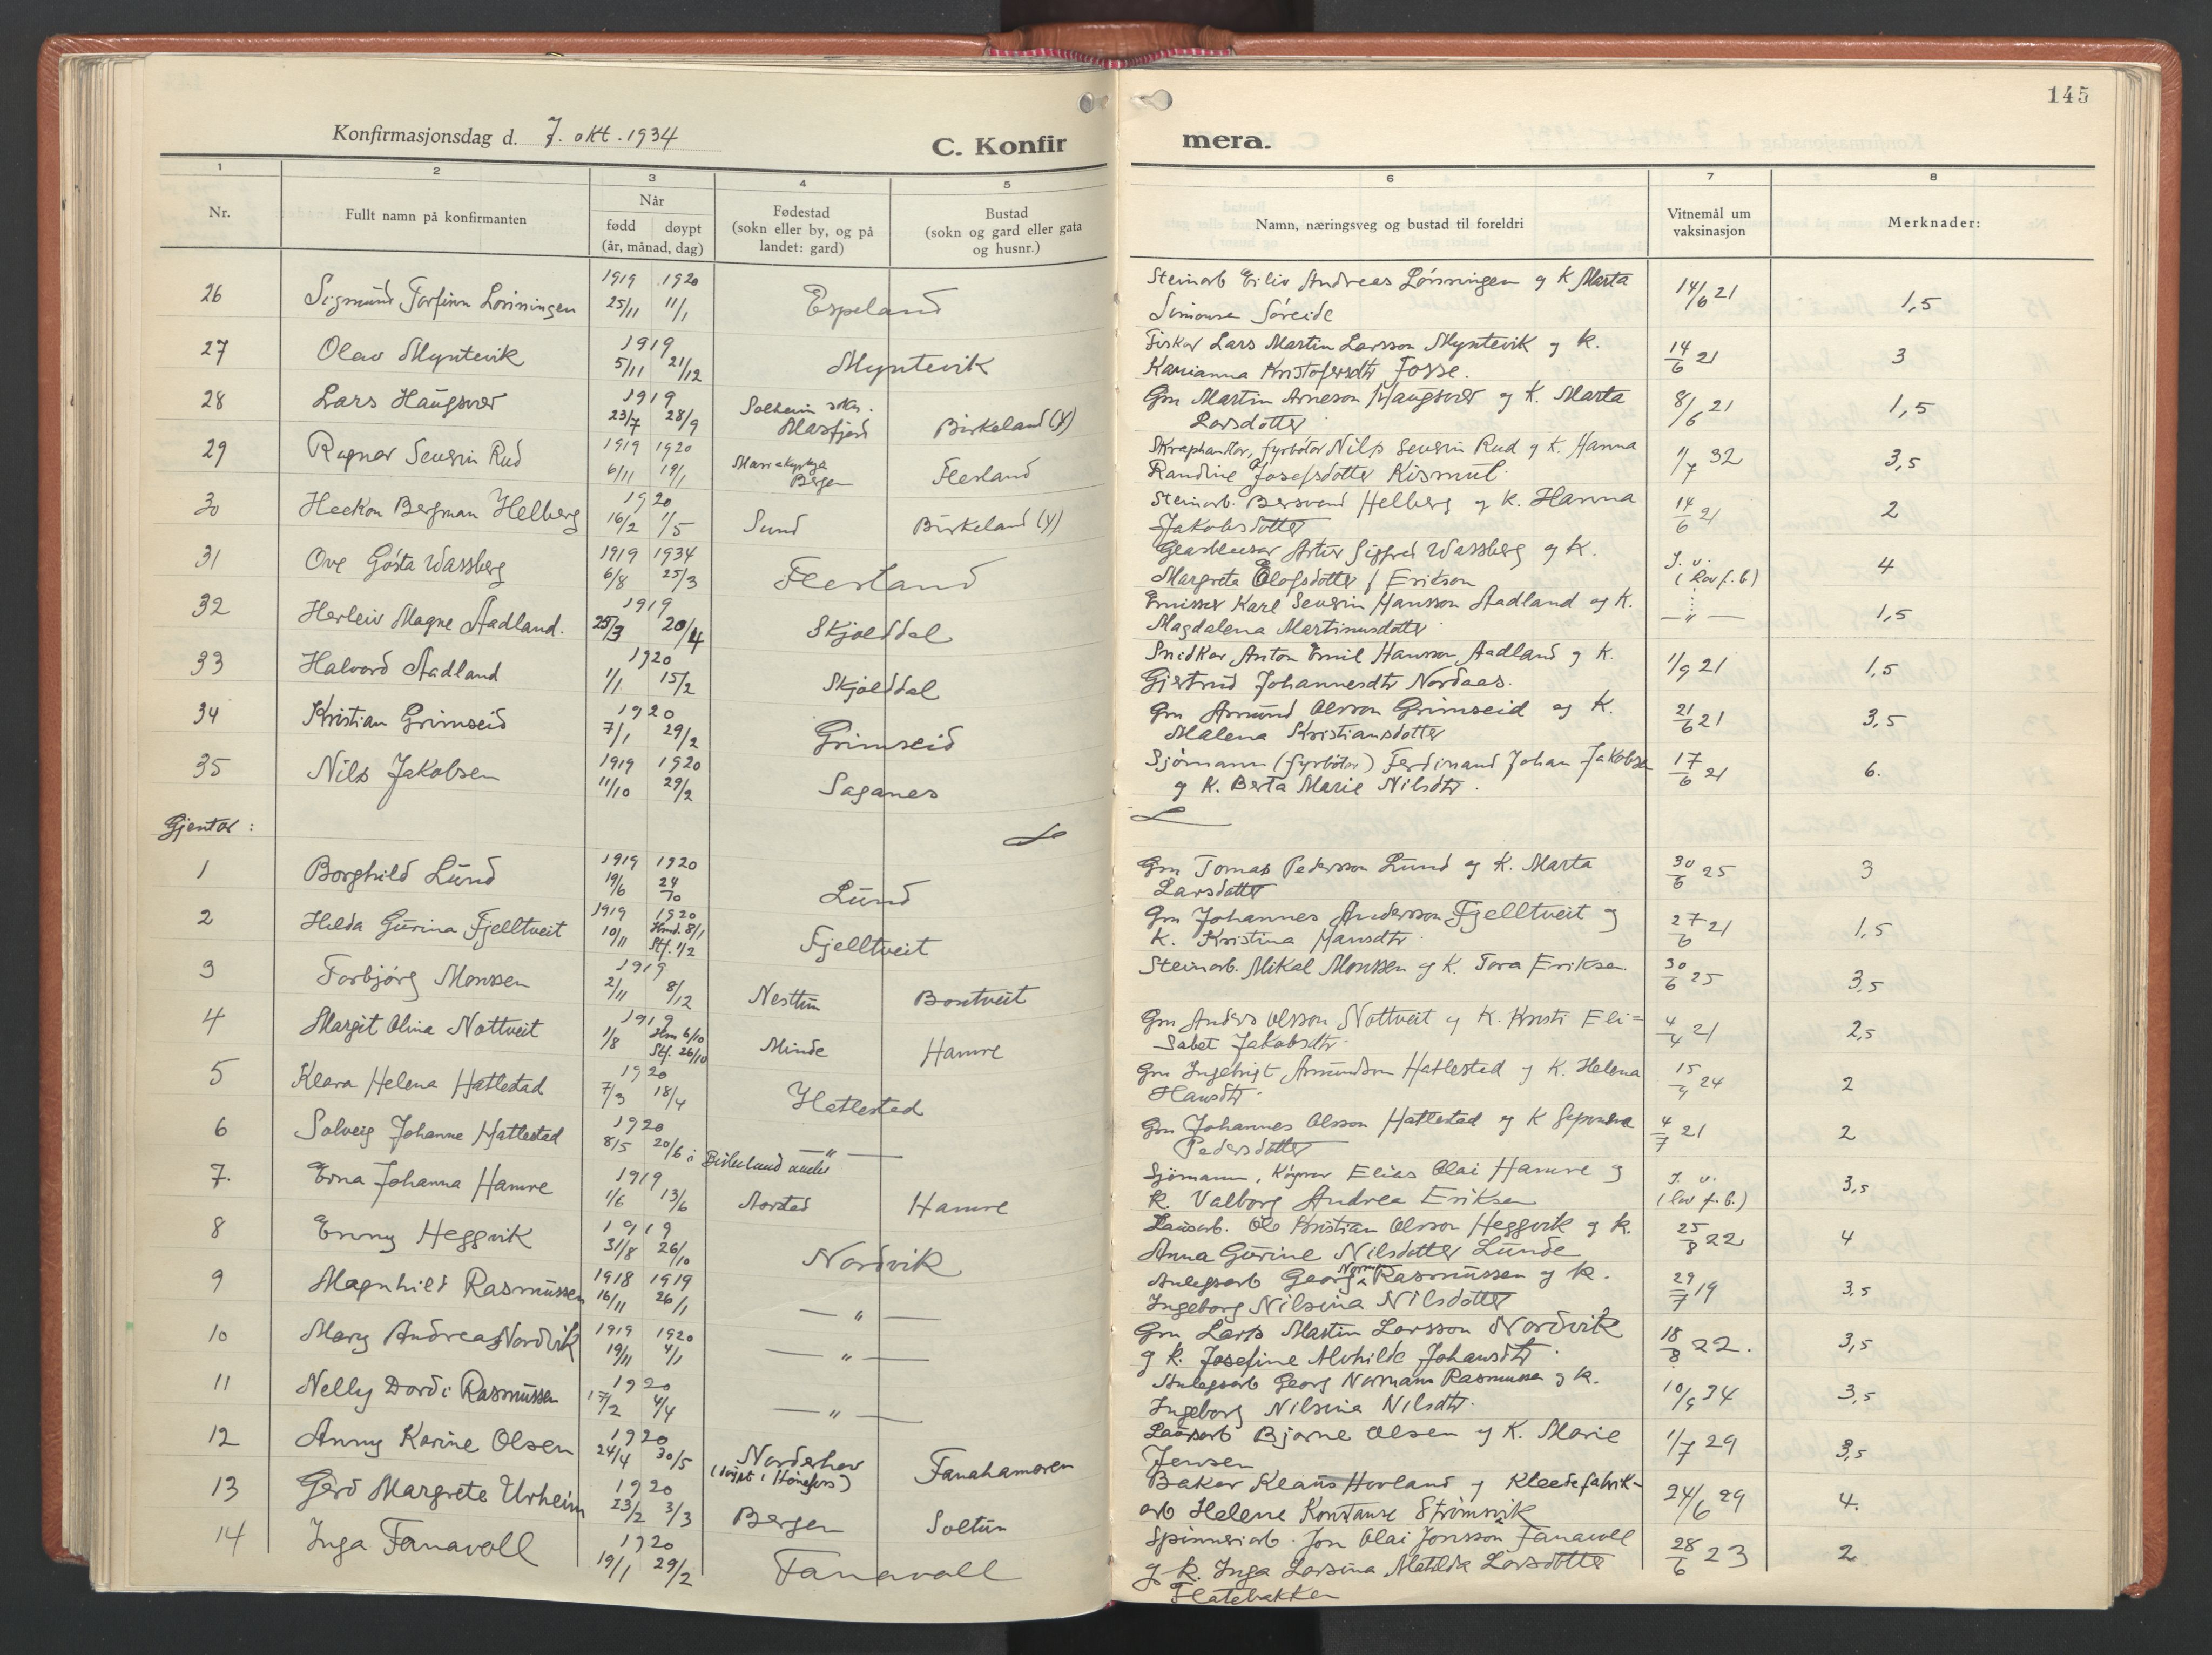 145
Konfirmasjonsdag d. 7. okt. 1934
C. Konfirmera.
1 2 3 4 5 6 7 8
Nr.
Fullt namn på konfirmanten
Når
fødd døypt
(år, månad, dag)
Fødestad
(sokn eller by, og på
landet: gard)
Bustad
(sokn og gard eller gata
og husnr.)
Namn, næringsveg og bustad til foreldri
Vitnemål um
vaksinasjon
Merknader:
26 Sigmund Torfinn Lønningen 1919 25/11 1920 11/1 Espeland Steinarb Eiliv Andreas Lønningen og k Marta
Simonsen Søreide 14/6 21 1,5
27 Olav Myntevik 1919 5/11 21/12 Myntevik Fiskar Lars Martin Larsson Myntevik og k.
Karianna Kristofersdtr Fosse. 14/6 21 3
28 Lars Haugsvær 1919 23/7 28/9 Solheim sokn. Masfjord Birkeland (Y) Gm Martin Arneson Haugsvær og k. Marta
Larsdotter 8/6 21 1,5
29 Ragnar Severin Rud 1919 6/11 1920 19/1 Mariakyrkja Bergen Flesland Skraphandlar, fyrbøtar Nils Severin Rud og k. Hanna
Randine Josefsdotter Kismul 1/7 32 3,5
30 Haakon Bergman Helberg 1920 16/2 1/5 Sund Birkeland (Y) Steinarb. Bersvend Helberg og k. Hanna
Jakobsdotter 14/6 21 2
31 Ove Gösta Wassberg 1919 6/8 1934 25/3 Flesland Glasblesar Artur Sigfred Wassberg og k.
Margreta Elofsdotter f Erikson J. v. (lov f. b) 4
32 Herleiv Magne Aadland. 1919 25/3 20/4 Skjolddal Emissær Karl Severin Hansson Aadland og k.
Magdalena Martinusdotter — " — 1,5
33 Halvard Aadland 1920 1/1 15/2 Skjolddal Snidkar Anton Emil Hansson Aadland og k.
Gjertrud Johannesdtr Nordaas. 1/9 21 1,5
34 Kristian Grimseid 1920 7/1 29/2 Grimseid Gm Amund Olsson Grimseid og k.
Malena Kristiansdotter 21/6 21 3,5
35 Nils Jakobsen 1919 11/10 1920 29/2 Saganes Sjømann (fyrbøtar) Ferdinand Johan Jakobsen
og k. Berta Marie Nilsdtr. 17/6 21 6.
Gjentor :
1 Borghild Lund 1919 19/6 1920 24/10 Lund Gm Tomas Pedersson Lund og k. Marta
Larsdotter 30/6 25 3
2 Hilda Gurina Fjelltveit 1919 10/11 1920 Hmd. 8/1 Stf. 1/2 Fjelltveit Gm Johannes Andersson Fjelltveit og
k. Kristina Hansdtr 27/6 21 1,5
3 Torbjørg Monssen 1919 2/11 8/12 Nesttun Bontveit Steinarb. Mikal Monssen og k. Tora Eriksen. 30/6 25 3,5
4 Margit Olina Nottveit 1919 1/8 Hm 6/10 Stf. 26/10 Minde Hamre Gm Anders Olsson Nottveit og k. Kristi Eli=
sabet Jakobsdtr. 4/4 21 2,5
5 Klara Helena Hatlestad 1920 7/3 18/4 Hatlestad Gm Ingebrigt Amundson Hatlestad og k. Helena
Hansdtr. 15/9 24 2
6 Solveig Johanne Hatlestad 1920 8/5 20/6 i Birkeland — " — Gm Johannes Olsson Hatlestad og k
Pedersdotter 4/7 21 2
7. Erna Johanna Hamre 1919 1/6 13/6 Aarstad Hamre Sjømann, Elias Olai Hamre og
k. Valborg Andrea Eriksen J. v. (lov f. b.) 3,5
8 Enny Heggvik 1919 31/8 26/10 Nordvik Lausarb. Ole Kristian Olsson Heggvik og k.
Anna Gurine Nilsdotter Lunde 25/8 22 4
9 Magnhild Rasmussen 1918 16/11 1919 26/1 — " — Anlegsarb Georg Norman Rasmussen og k.
Ingeborg Nilsina Nilsdotter 29/7 19 3,5
10 Mary Andrea Nordvik 1919 19/11 1920 4/1 — " — Gm Lars Martin Larsson Nordvik
og k. Josefine Alvhilde Johansdtr. 18/8 22. 3,5
11 Nelly Dordi Rasmussen 1920 17/2 4/4 — " — Anlegsarb Georg Normann Rasmussen og k.
Ingeborg Nilsina Nilsdtr. 10/9 34 3,5
12 Anny Karine Olsen 1920 24/4 30/5 Norderhov (døypt i Hønefoss) Fanahamaren Lausarb Bjarne Olsen og k. Marie
Jensen 1/7 29 3,5
13 Gerd Margrete Urheim 1920 23/2 3/3 Bergen Soltun Bakar Klaus Hovland og Klædefabrik-
arb Helene Konstanse Strømsvik 24/6 29 4.
14 Inga Fanavoll 1920 19/1 29/2 Fanavoll Spinneriarb. Jon Olai Jonsson Fanavoll
og k. Inga Larsina Matilda Larsdotter
Flatebakken 28/6 23 2